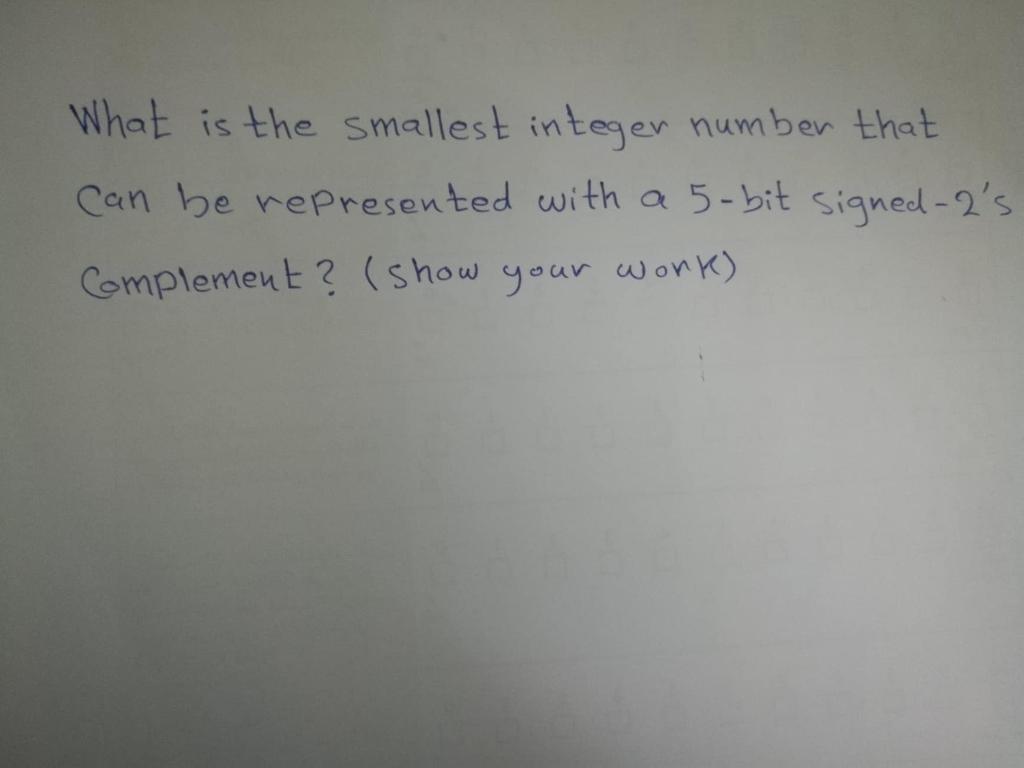 What is the smallest integer number that
Can be represented with a 5-bit signed-2's
Complement? (show your work)